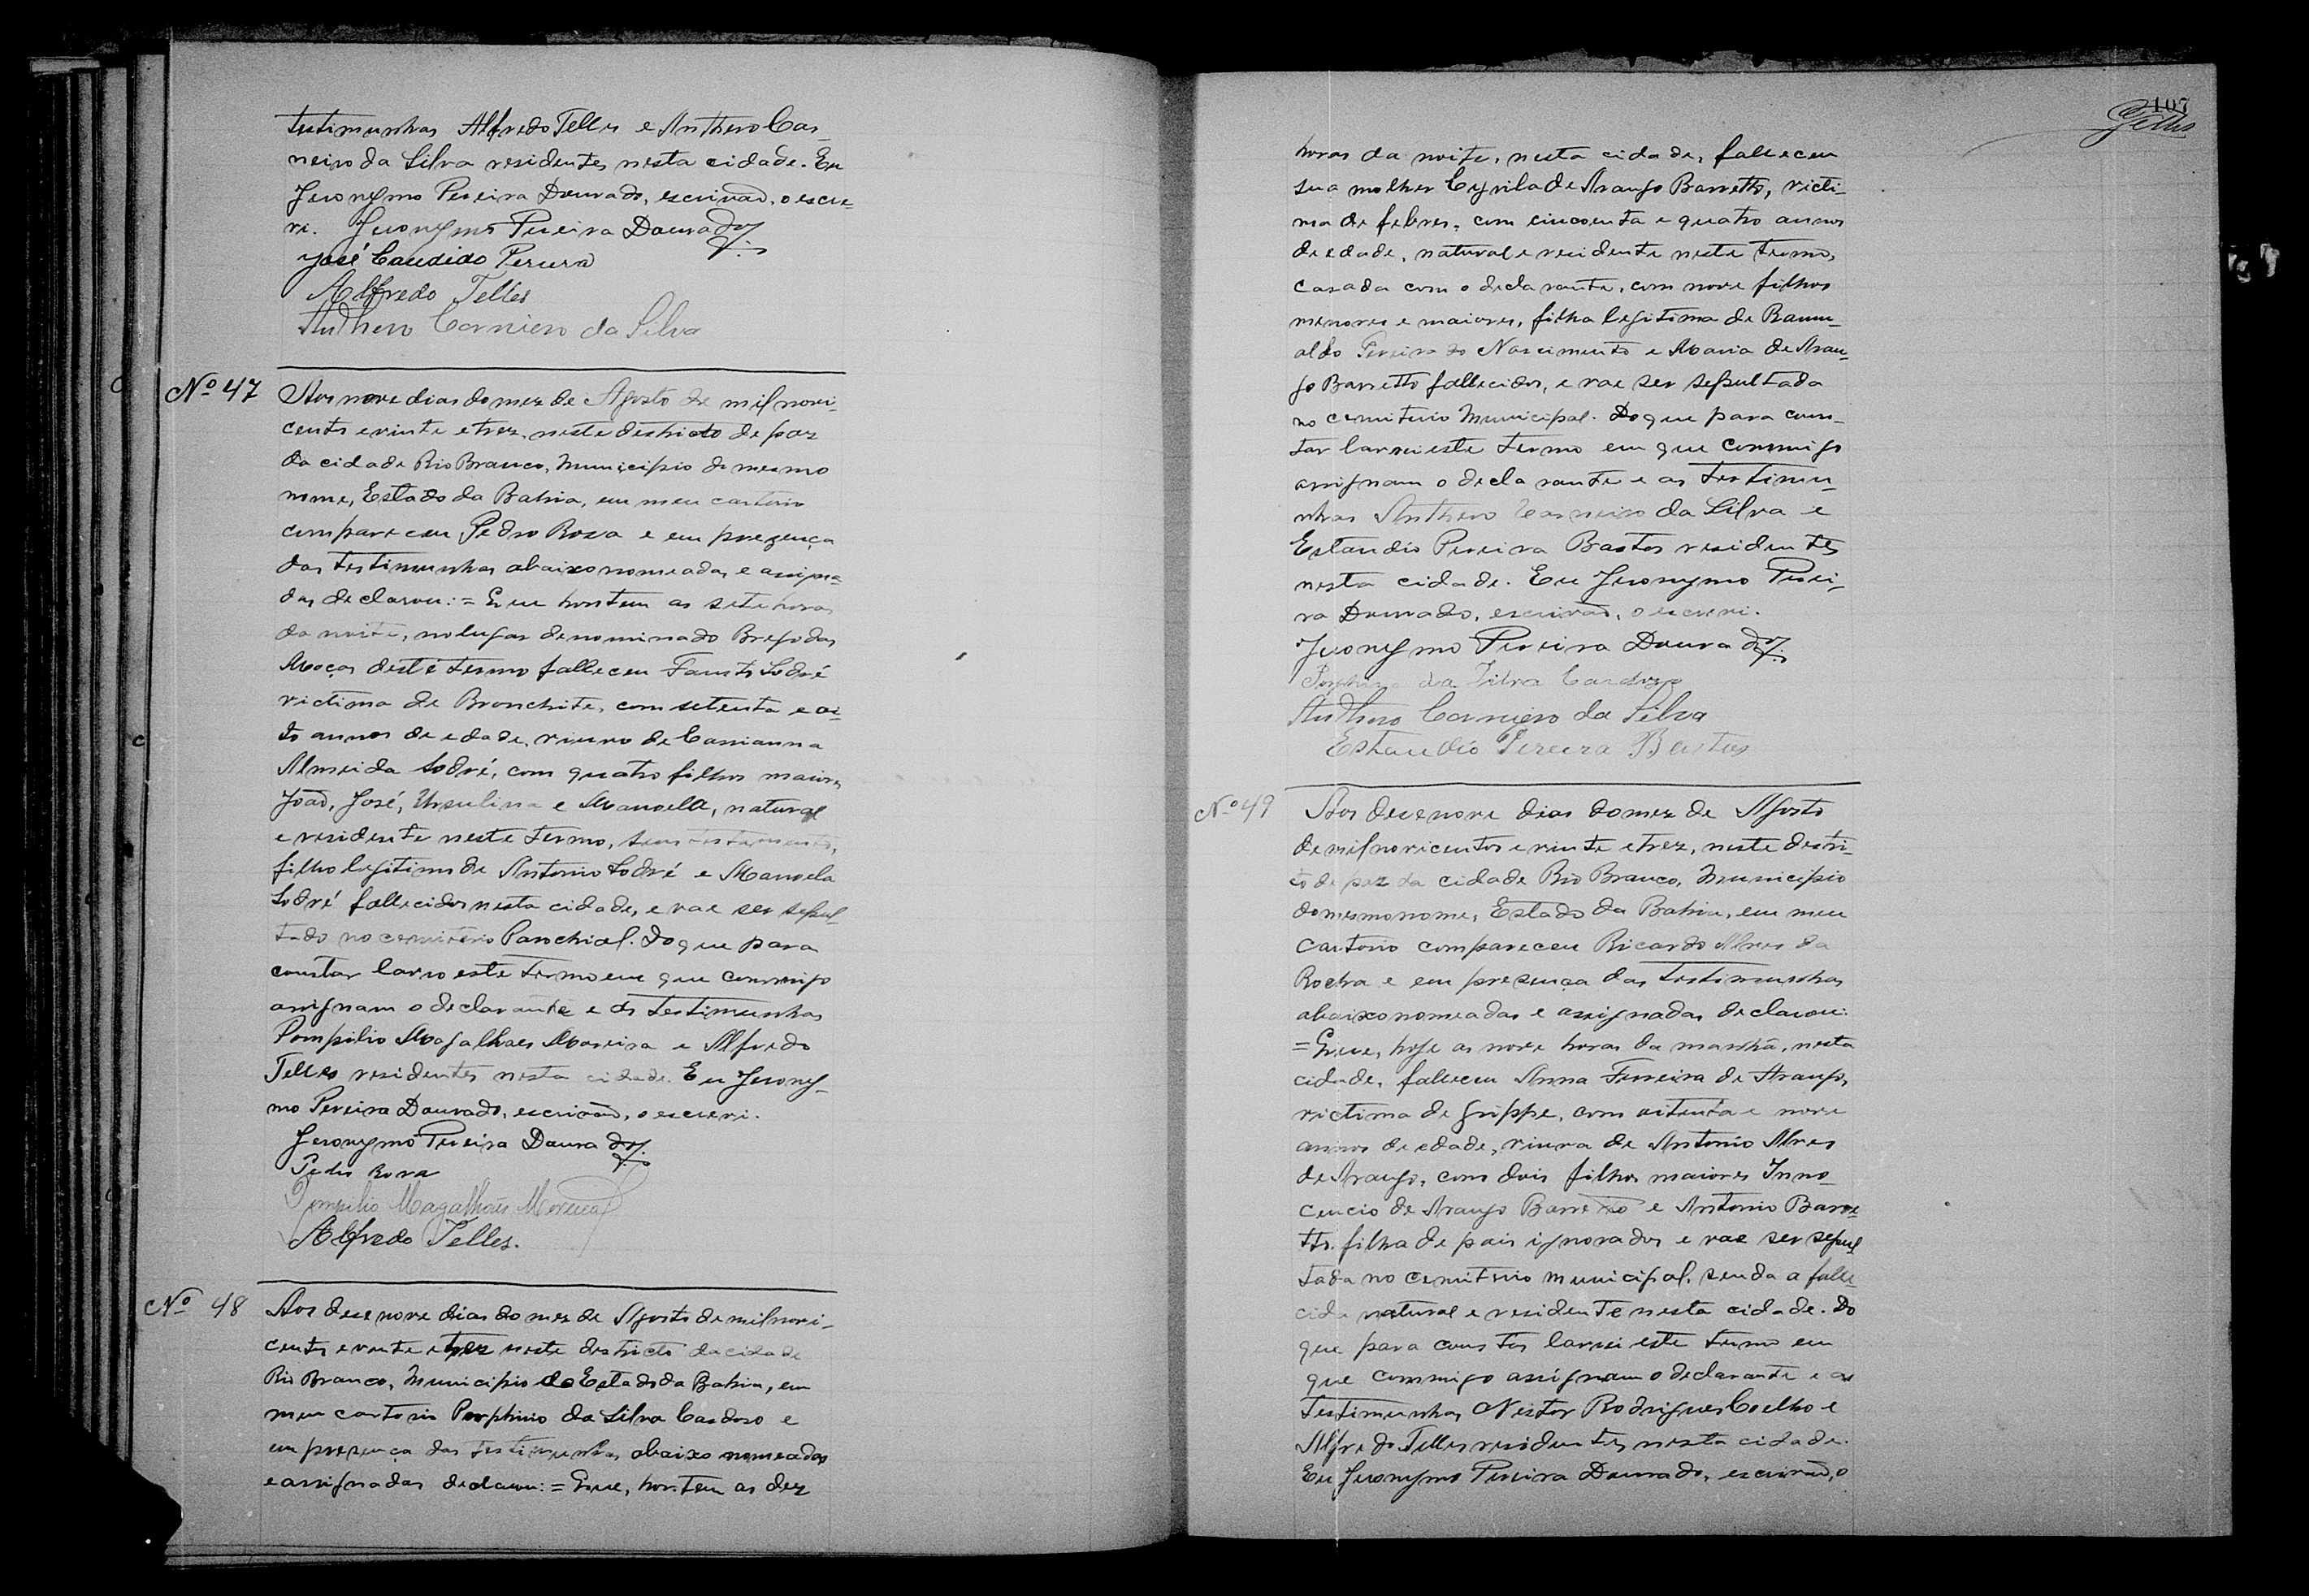 testimunhas Alfredo Telles e Anthero Car_
neiro da Silva residentes nesta cidade. Eu
Jeronymo Pereira Dourado, escrivão, o escre_
vi. Jeronymo Pereira Dourado
José Candido Pereira
Alfredo Telles
Anthero Carneiro da Silva
Nº 47
Aos nove dias do mez de Agosto de mil novi_
cento e vinte e trez, neste destricto de paz
da cidade Rio Branco, Municipio do mesmo
nome, Estado da Bahia, em meu cartorio
compareceu Pedro Rosa e em prezença
das testimunhas abaixo nomeadas e assigna_
das declarou: = Que hontem as sete horas
da noite, no lugar denominado Brejo das
Moças deste termo falleceu Fausto Sodré
victima de Bronchite, com setenta e oi_
to annos de edade, viuvo de Cassianna
Almeida Sodré, com quatro filhos maiores
João, José, Ursulina e Manoella, natural
e residente neste termo, sem testamento,
filho legitimo de Antonio Sodré e Manoela
Sodré fallecidos nesta cidade, e vae ser sepul_
tado no cemiterio Parochial. Do que para
constar lavro este termo em que commigo
assignam o declarante e as testimunhas
Pompilio Magalhaes Moreira e Alfredo
Telles residentes nesta cidade. Eu Jerony_
mo Pereira Dourado, escrivão, o escrevi.
Jeronymo Pereira Dourado
Pedro Rosa
Pompilio Magalhães Moreira
Alfredo Telles.
Nº 48
Aos desenove dias do mez de Agosto de mil novi_
centos e vinte e trez neste destricto da cidade
Rio Branco, Municipio do Estado da Bahia, em
meu cartorio Porphirio da Silva Cardoso e
em prezença das testimunhas abaixo nomeadas
e assignadas declarou: = Que, hontem as dez
107
Telles
horas da noite, nesta cidade, falleceu
sua molher Cyrila de Araujo Barretto, victi_
ma de febres, com cincoenta e quatro annos
de edade, natural e residente neste termo,
casada com o declarante, com nove filhos
menores e maiores, filha legitima de
Pereira do Nascimento e Maria de Arau_
jo Barretto fallecidos, e vae ser sepultada
no cemiterio Municipal. Do que para cons_
tar lavrei este termo em que commigo
assignam o declarante e as testimu_
nhas Anthero Carneiro da Silva e
Estandio Pereira Bastos residentes
nesta cidade. Eu Jeronymo Perei_
ra Dourado, escrivão, o escrevi.
Jeronymo Pereira Dourado
da Silva Cardozo
Anthero Carneiro da Silva
Estandio Pereira Bastos
Nº 49
Aos desenove dias do mez de Agosto
de mil novicentos e vinte e trez, neste destri_
to de paz da cidade Rio Branco, Municipio
do mesmo nome, Estado da Bahia, em meu
cartorio compareceu Ricardo Alves da
Rocha e em presença das testimunhas
abaixo nomeadas e assignadas declarou:
= Que, hoje as nove horas da manhã, nesta
cidade, falleceu Anna Ferreira de Araujo,
victima de grippe, com oitenta e nove
annos de edade, viuva de Antonio Alves
de Araujo, com dois filhos maiores Inno_
cencio de Araujo Barretto e Antonio Barre_
tto, filha de pais ignorados e vae ser sepul_
tada no cemiterio municipal, senda a falle_
cida natural e residente nesta cidade. Do
que para constar lavrei este termo em
que commigo assignam o declarante e as
Testimunhas Nestor Rodrigues Coelho e
Alfredo Telles residentes nesta cidade.
Eu Jeronymo Pereira Dourado, escrivão, o